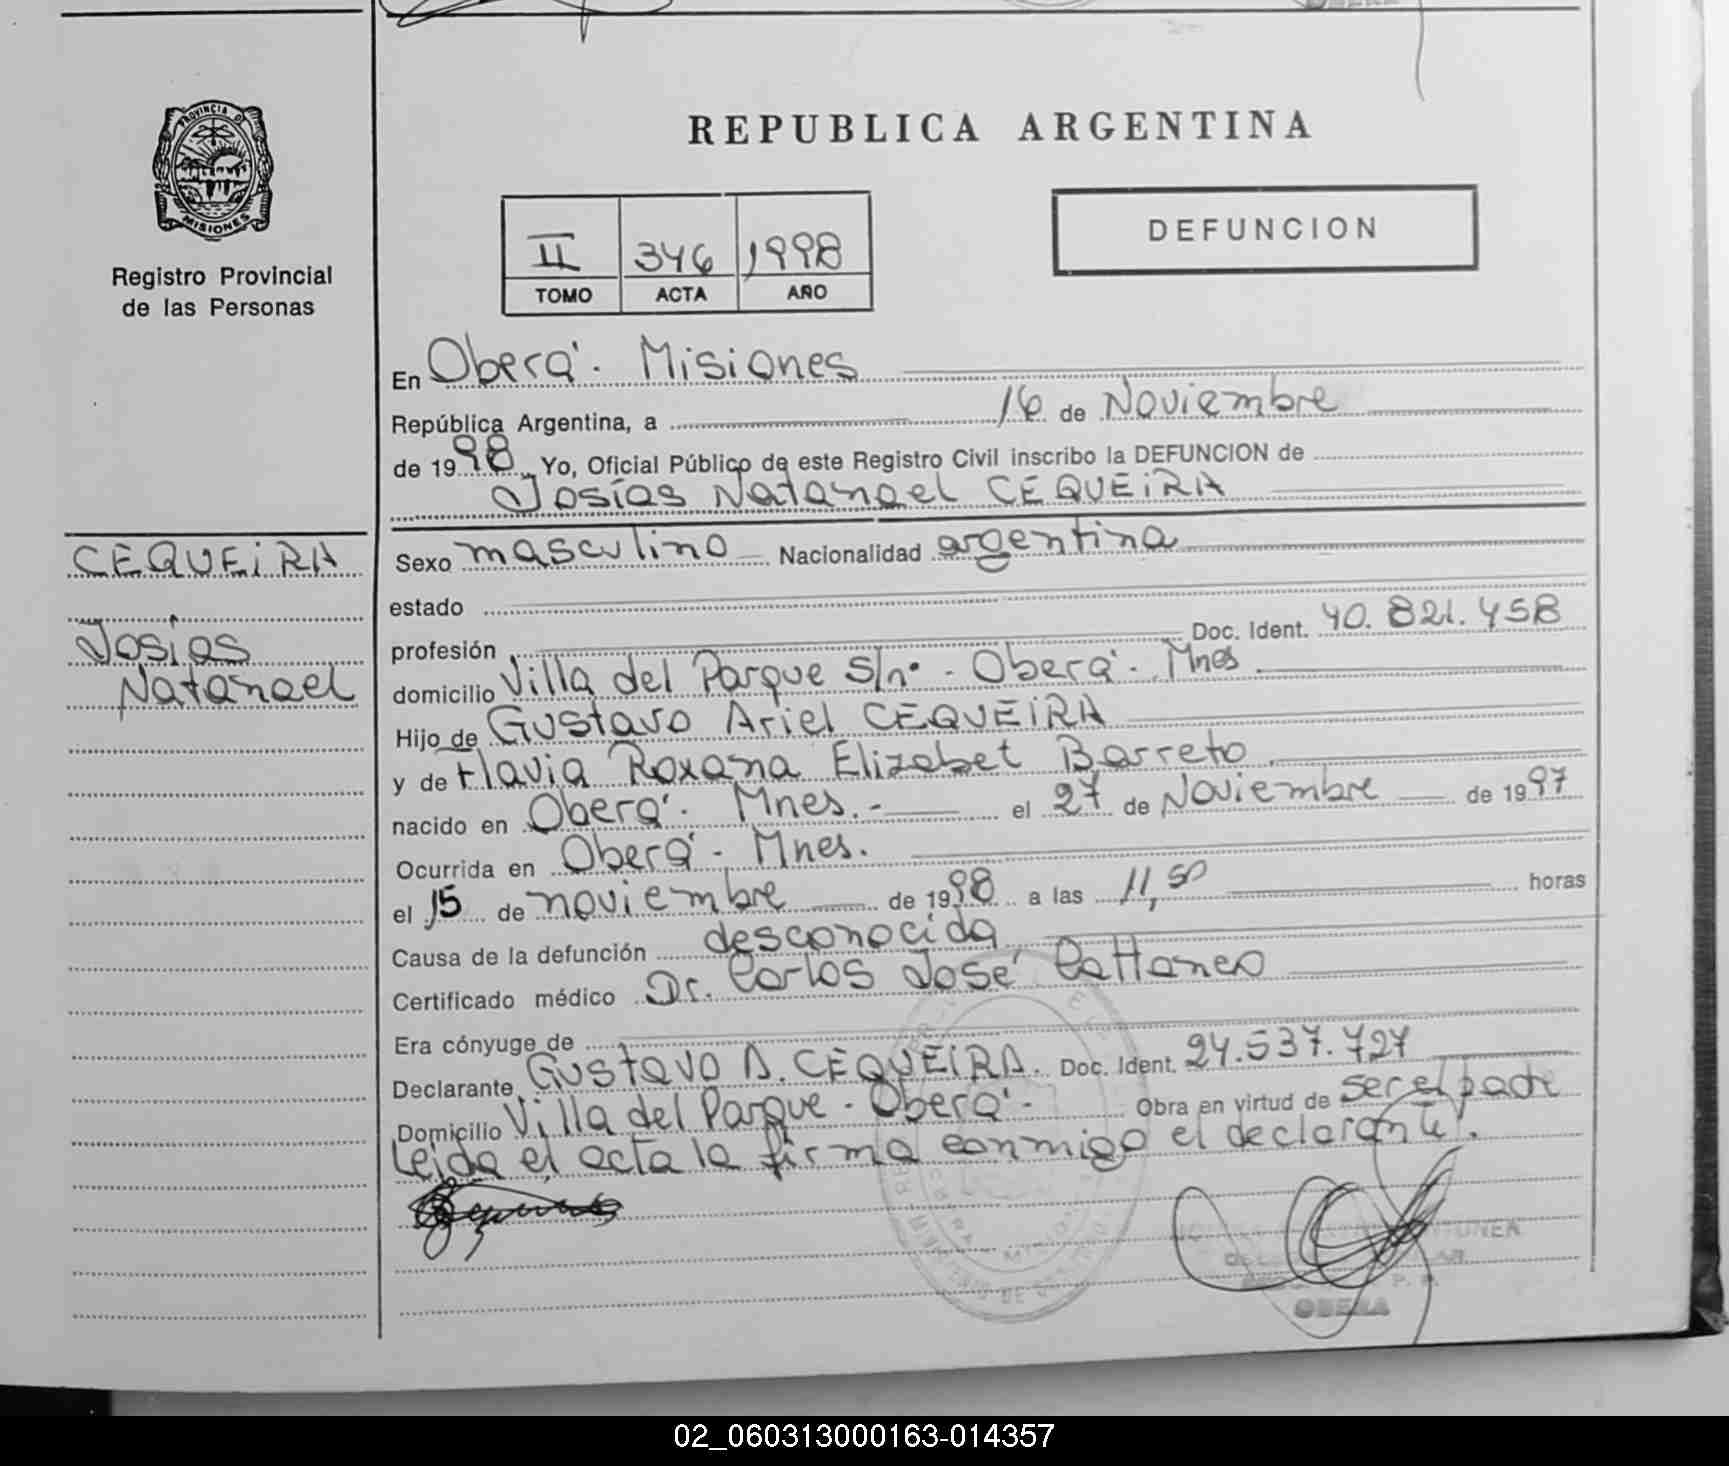 OBERA
PROVINCIA DE
MISIONES
Registro Provincial
de las Personas
REPUBLICA ARGENTINA
II 346 1998
TOMO ACTA AÑO
DEFUNCION
En Oberá. Misiones
República Argentina, a 16 de Noviembre
de 1998 Yo, Oficial Público de este Registro Civil inscribo la DEFUNCION de
Josías Natanael CEQUEIRA
CEQUEIRA
Josías
Natanael
Sexo masculino Nacionalidad argentina
estado
profesión Doc. Ident. 40.821.458
domicilio Villa del Parque S/nº - Oberá. Mnes
Hijo de Gustavo Ariel CEQUEIRA
y de Flavia Roxana Elizabet Barreto
nacido en Oberá. Mnes. - el 27 de Noviembre de 1997
Ocurrida en Oberá - Mnes.
el 15 de noviembre de 1998 a las 11,50 horas
Causa de la defunción desconocida
Certificado médico Dr. Carlos José Cattaneo
Era cónyuge de
Declarante Gustavo A. CEQUEIRA. Doc. Ident. 24.537.727
Domicilio Villa del Parque - Oberá - Obra en virtud de ser el padre
Leida el acta la firma conmigo el declarante.
OBERA
02_060313000163-014357